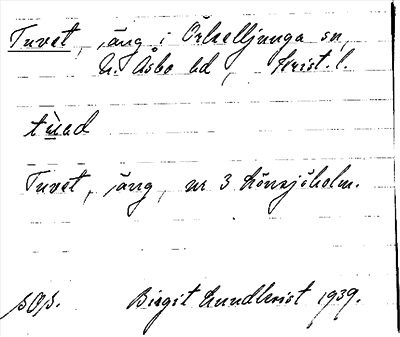 Tuvet, äng i Örkelljunga sn,
N. Åsbo hd, Krist. l.
tùad
Tuvet, äng, nr 3 Lönsjöholm.
sOp. Birgit Lundkvist 1939.